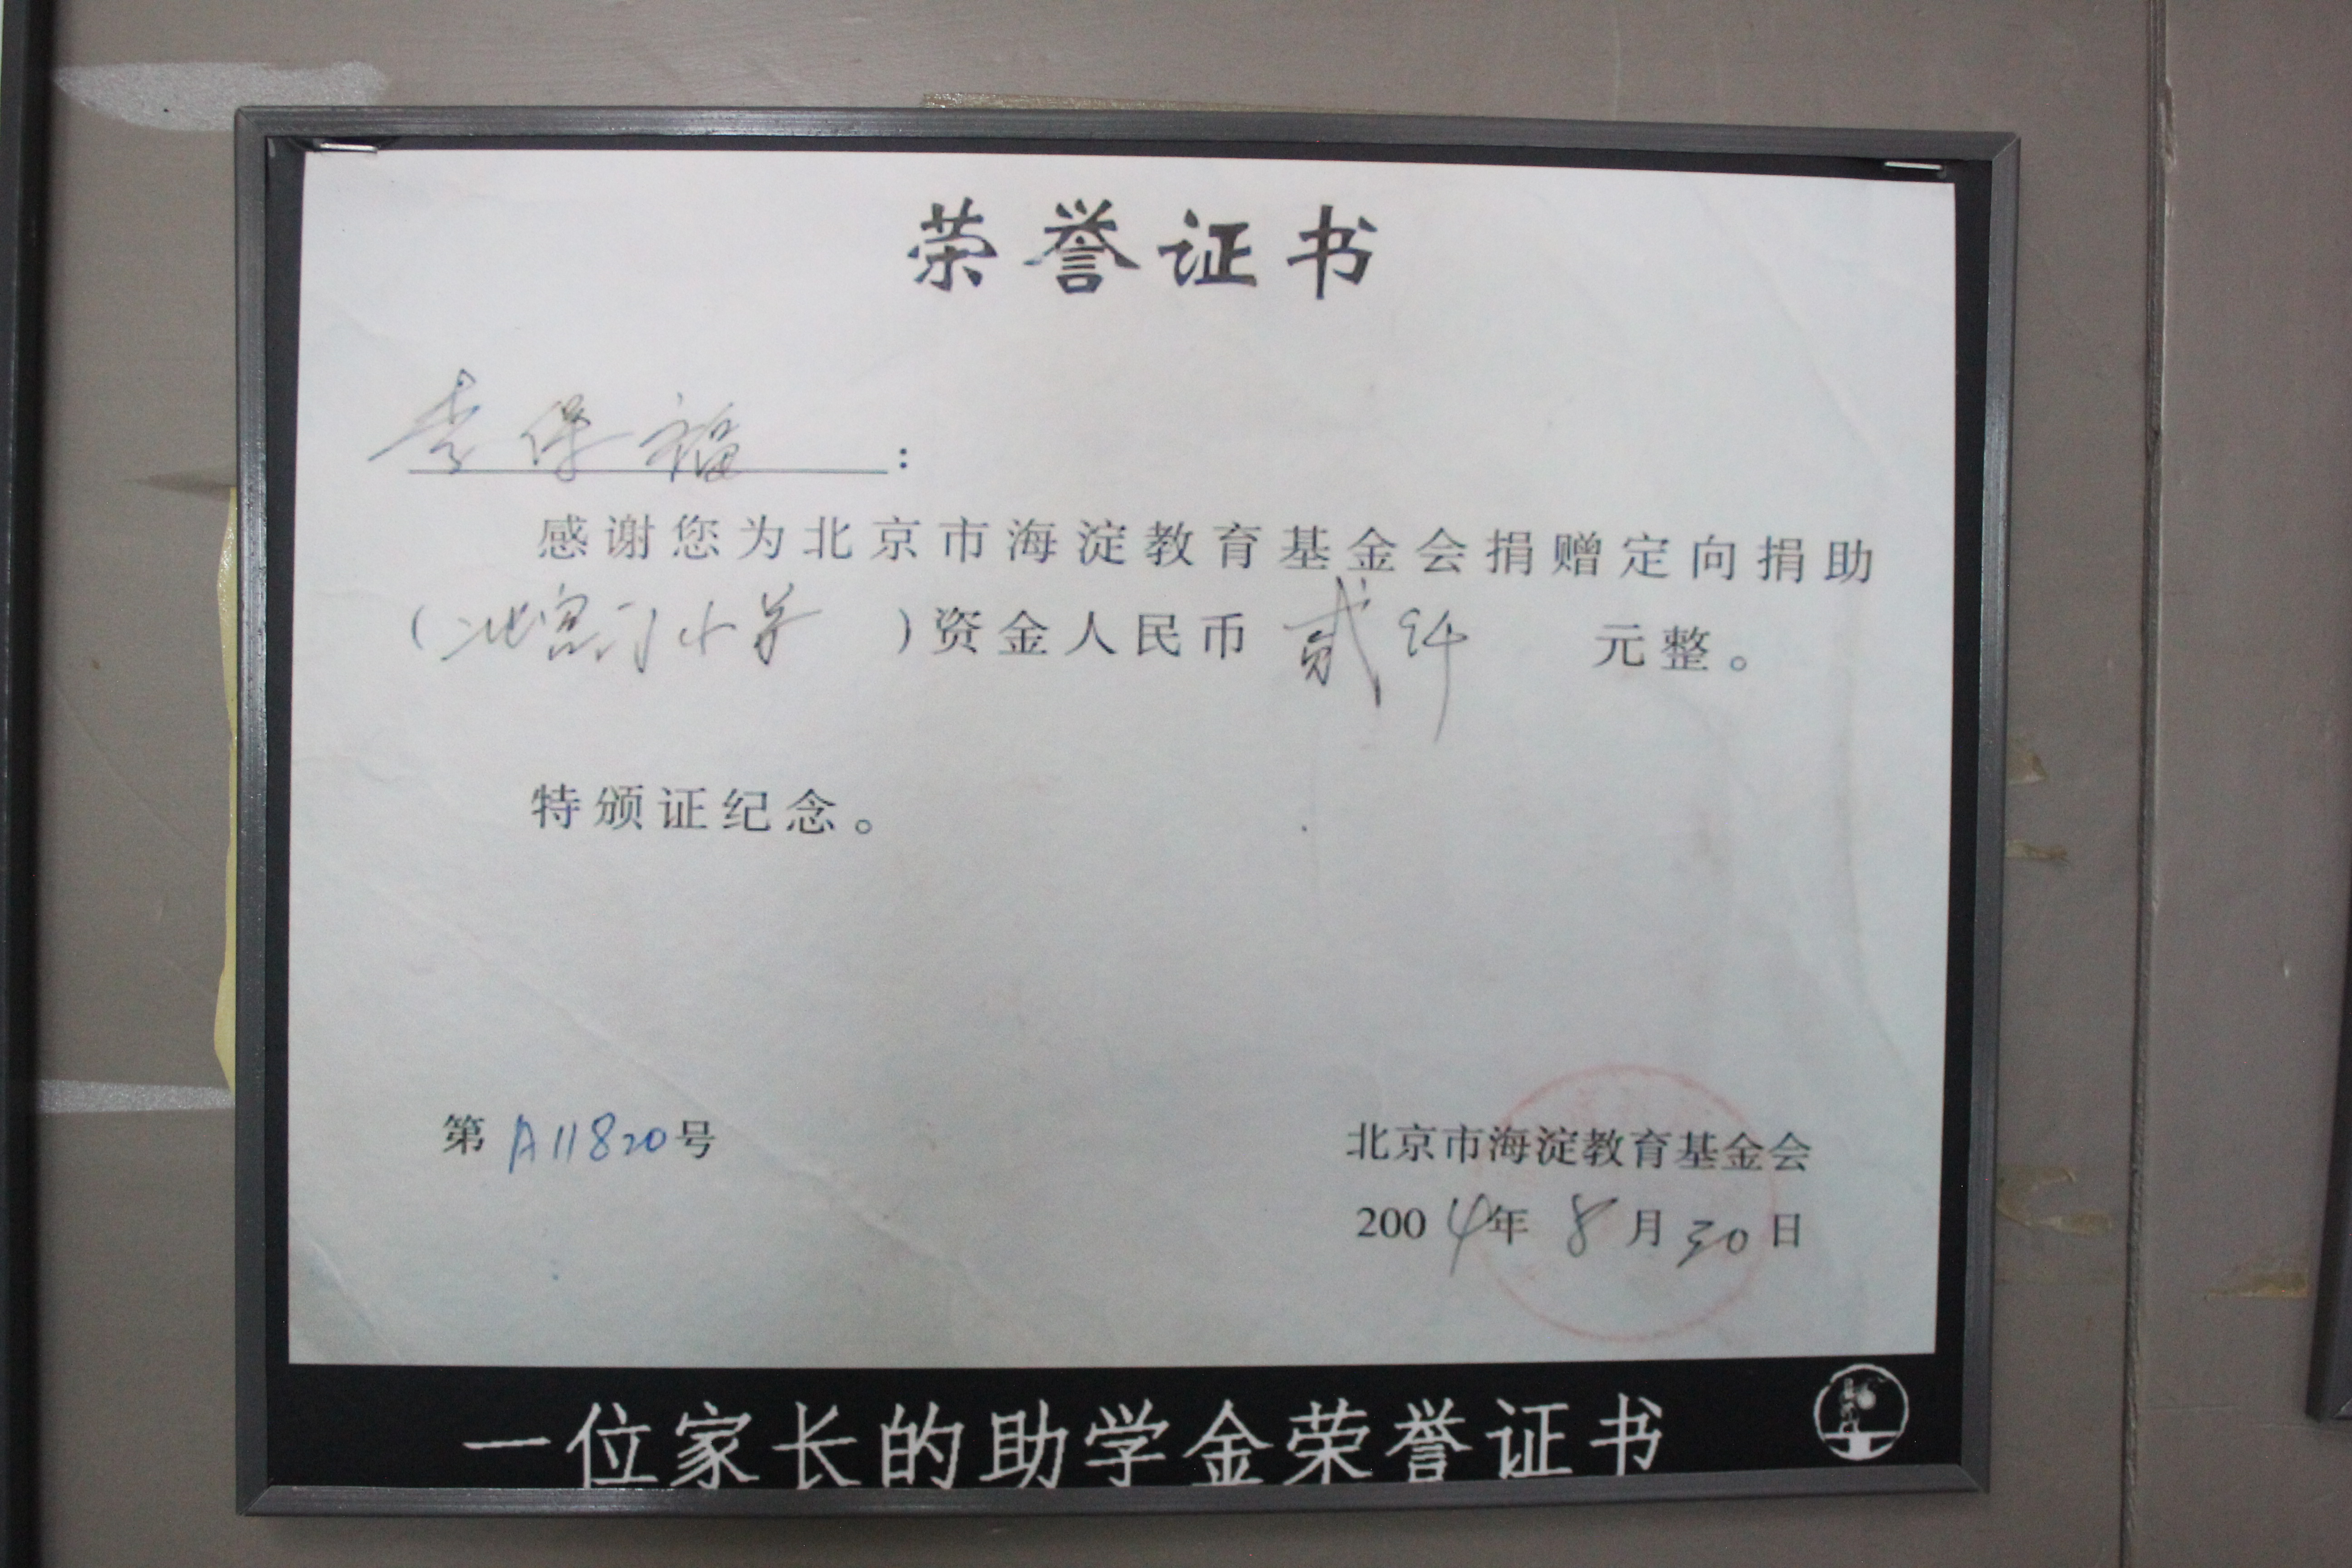 荣誉证书
李保福:
感谢您为北京市海淀教育基金会捐赠定向捐助
(北宫门小学)资金人民币贰仟元整。
特颁证纪念。
第A11820号
北京市海淀教育基金会
2004年8月30日
一位家长的助学金荣誉证书